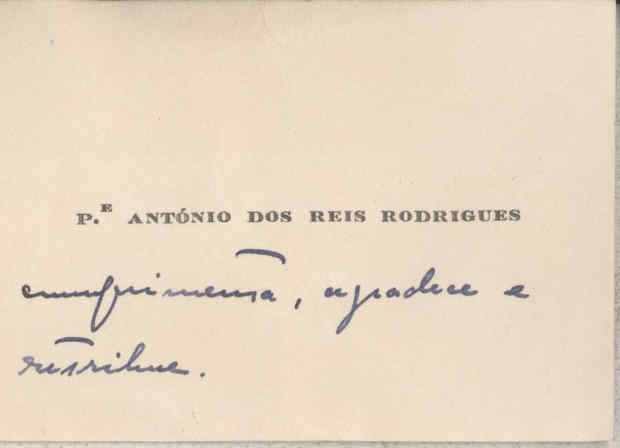 P.E ANTÓNIO DOS REIS RODRIGUES
cumprimenta, agradece e
retribue.